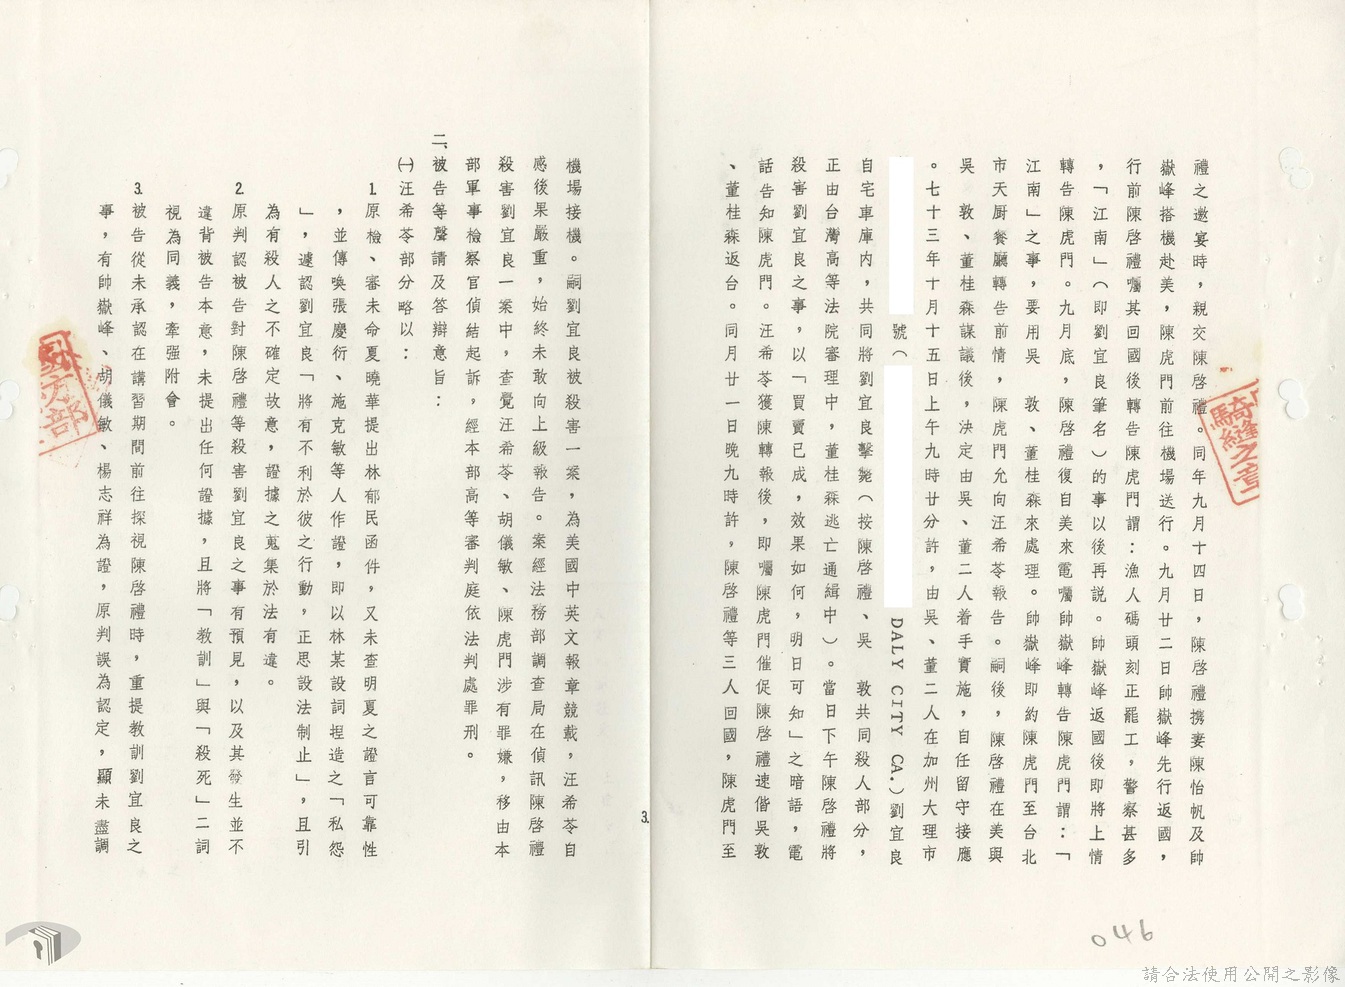 禮之邀宴時，親交陳啓禮。同年九月十四日，陳啓禮携妻陳怡帆及帥
嶽峰搭機赴美，陳虎門前往機場送行。九月廿二日帥嶽峰先行返國，
行前陳啓禮囑其回國後轉告陳虎門謂：漁人碼頭刻正罷工，警察甚多
，「江南」（即劉宜良筆名）的事以後再説。帥嶽峰返國後即將上情
轉告陳虎門。九月底，陳啓禮復自美來電囑帥嶽峰轉告陳虎門謂：「
江南」之事，要用吳　敦、董桂森來處理。帥嶽峰即約陳虎門至台北
市天厨餐廳轉告前情，陳虎門允向汪希苓報告。嗣後，陳啓禮在美與
吳　敦、董桂森謀議後，決定由吳、董二人着手實施，自任留守接應
。七十三年十月十五日上午九時廿分許，由吳、董二人在加州大理市
號（　DALY CITY CA.）劉宜良
自宅車庫内，共同將劉宜良擊斃（按陳啓禮、吳　敦共同殺人部分，
正由台灣高等法院審理中，董桂森逃亡通緝中）。當日下午陳啓禮將
殺害劉宜良之事，以「買賣已成，效果如何，明日可知」之暗語，電
話告知陳虎門。汪希苓獲陳轉報後，即囑陳虎門催促陳啓禮速偕吳敦
、董桂森返台。同月廿一日晚九時許，陳啓禮等三人回國，陳虎門至
3.
機場接機。嗣劉宜良被殺害一案，為美國中英文報章競載，汪希苓自
感後果嚴重，始終未敢向上級報告。案經法務部調查局在偵訊陳啓禮
殺害劉宜良一案中，查覺汪希苓、胡儀敏、陳虎門涉有罪嫌，移由本
部軍事檢察官偵結起訴，經本部高等審判庭依法判處罪刑。
二、被告等聲請及答辯意旨：
㈠汪希苓部分略以：
1.原檢、審未命夏曉華提出林郁民函件，又未查明夏之證言可靠性
，並傳喚張慶衍、施克敏等人作證，即以林某設詞捏造之「私怨
」，遽認劉宜良「將有不利於彼之行動，正思設法制止」，且引
為有殺人之不確定故意，證據之蒐集於法有違。
2.原判認被告對陳啓禮等殺害劉宜良之事有預見，以及其發生並不
違背被告本意，未提出任何證據，且將「教訓」與「殺死」二詞
視為同義，牽强附會。
3.被告從未承認在講習期間前往探視陳啓禮時，重提教訓劉宜良之
事，有帥嶽峰、胡儀敏、楊志祥為證，原判誤為認定，顯未盡調
騎縫之章
046
請合法使用公開之影像